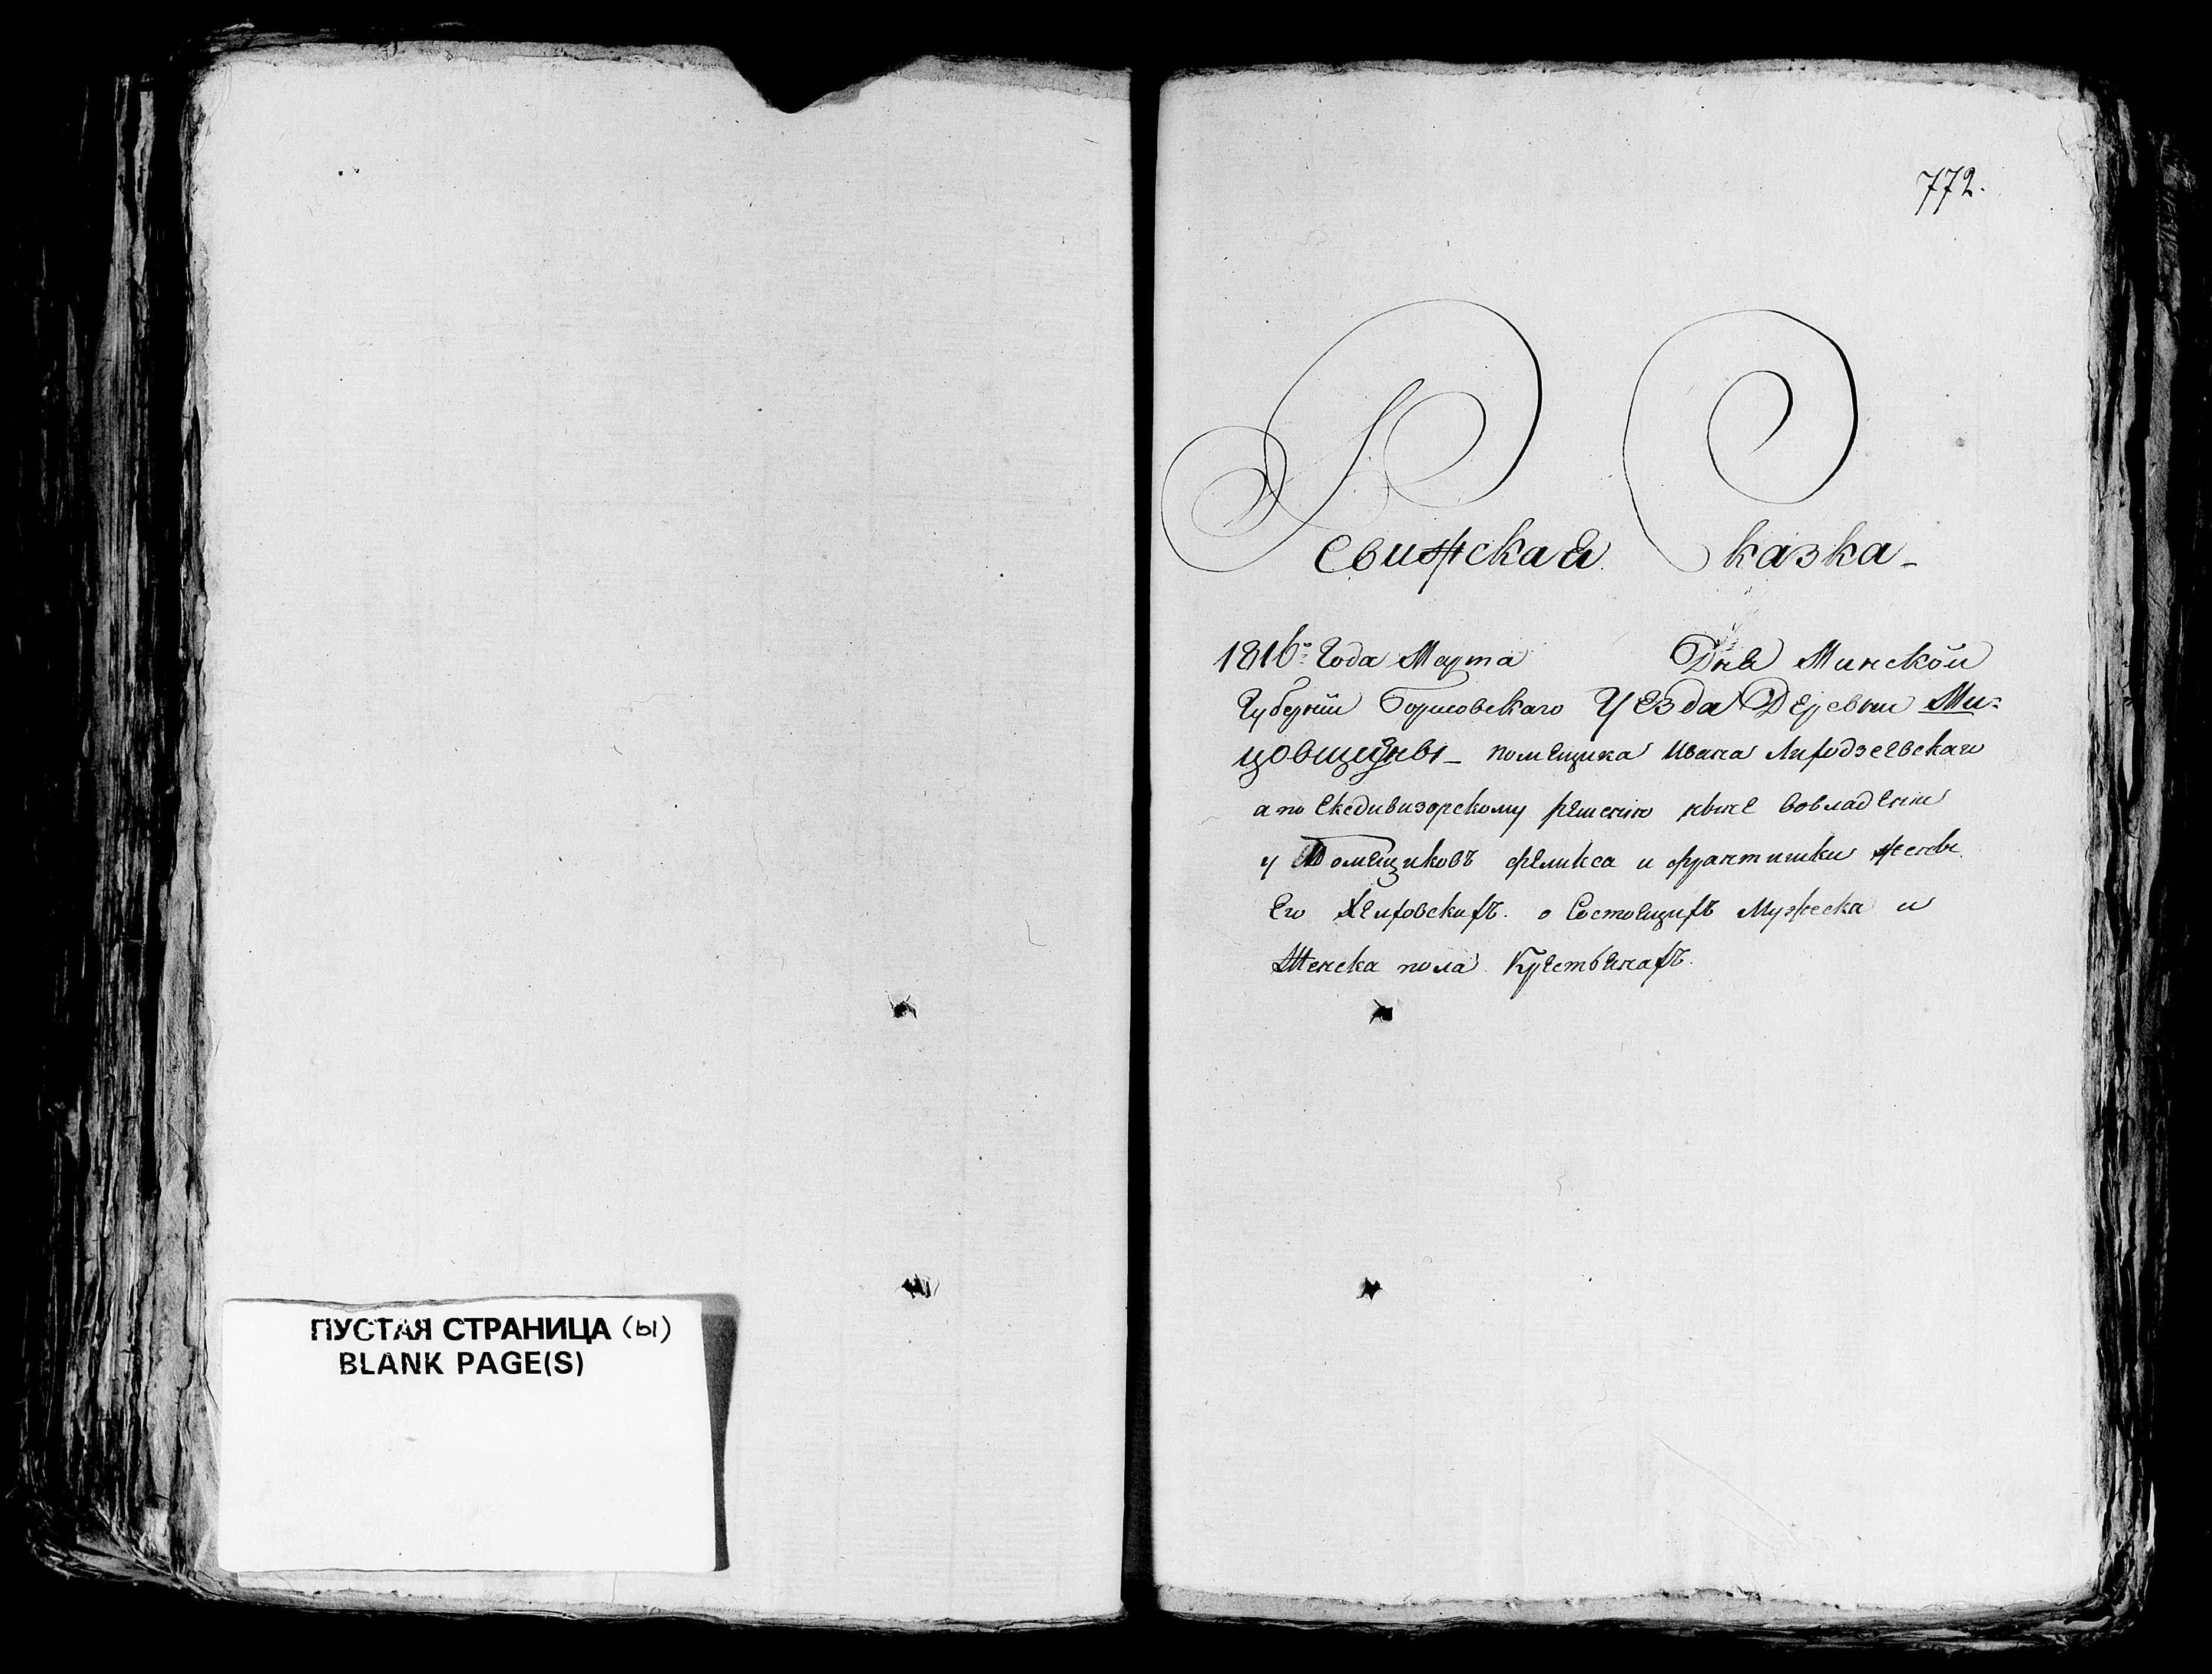 ПУСТАЯ СТРАНИЦА (ы)
BLANK PAGE(S)
772.
Ревижская Сказка
1816го Года Марта Дня Минской
Губернии Борисовскаго Уезда Деревни Ми=
цовщизны помещика Ивана
а по Екздивизорскому решению ныне вовладении
у Помещиковъ феликса и франтишки жены
Его о Состоящихъ Мужеска и
Женска пола Крестьянахъ.